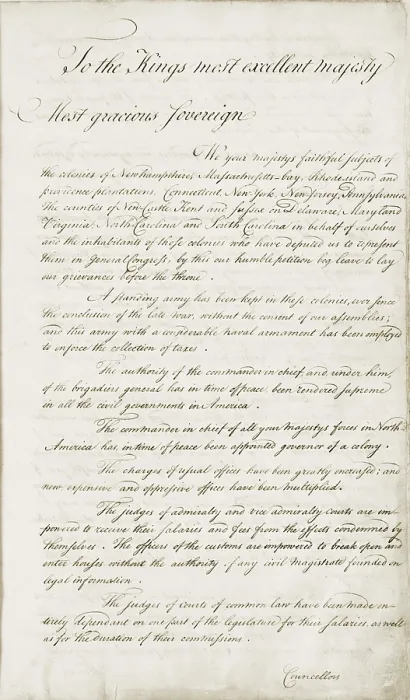 To the Kings most excellent majesty
Most gracious sovereign
We your majestys faithful subjects of
the colonies of Newhampshire, Massachusetts-bay, Rhode island and
providence plantations, Connecticut, New-York, New Jersey, Pennsylvania,
the counties of New-Castle Kent and Sussex on Delaware, Maryland
Virginia, North-Carolina and South Carolina in behalf of ourselves
and the inhabitants of those colonies who have deputed us to represent
them in General Congress, by this our humble petition beg leave to lay
our grievances before the throne.
A standing army has been kept in these colonies, ever since
the conclusion of the late war, without the consent of our assemblies;
and this army with a considerable naval armament has been employed
to enforce the collection of taxes.
The authority of the commander in chief, and, under him,
of the brigadiers general has in time of peace been rendered supreme
in all the civil governments in America.
The commander in chief of all your majestys forces in North-
America has in time of peace been appointed governor of a colony.
The charges of usual offices have been greatly increased; and
new, expensive and oppressive offices have been multiplied.
The judges of admiralty and vice admiralty courts are im-
powered to receive their salaries and fees from the effects condemned by
themselves. The officers of the customs are impowered to break open and
enter houses without the authority of any civil magistrate founded on
legal information.
The judges of courts of common law have been made in-
tirely dependant on one part of the legislature for their salaries, as well
as for the duration of their commissions.
Councellors